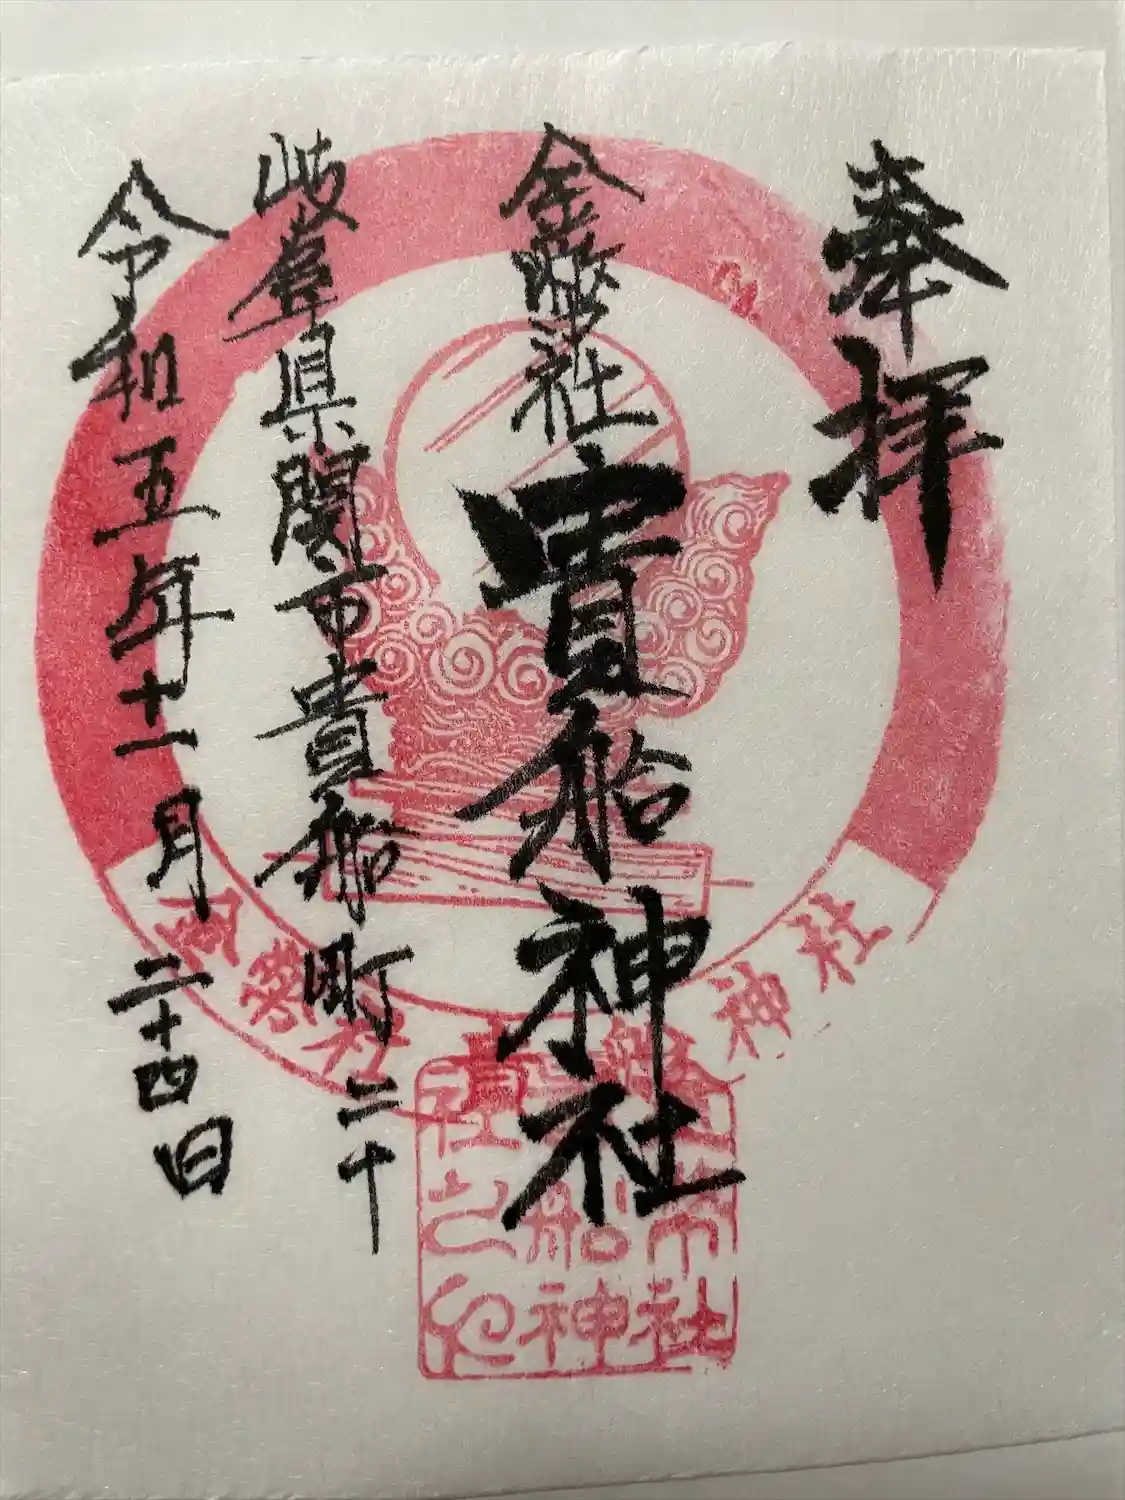 奉拝
金幣社
貴船神社
岐阜県関市貴船町二十
令和五年十一月二十四日
金幣社
貴船神社
金幣社
貴船神社之印